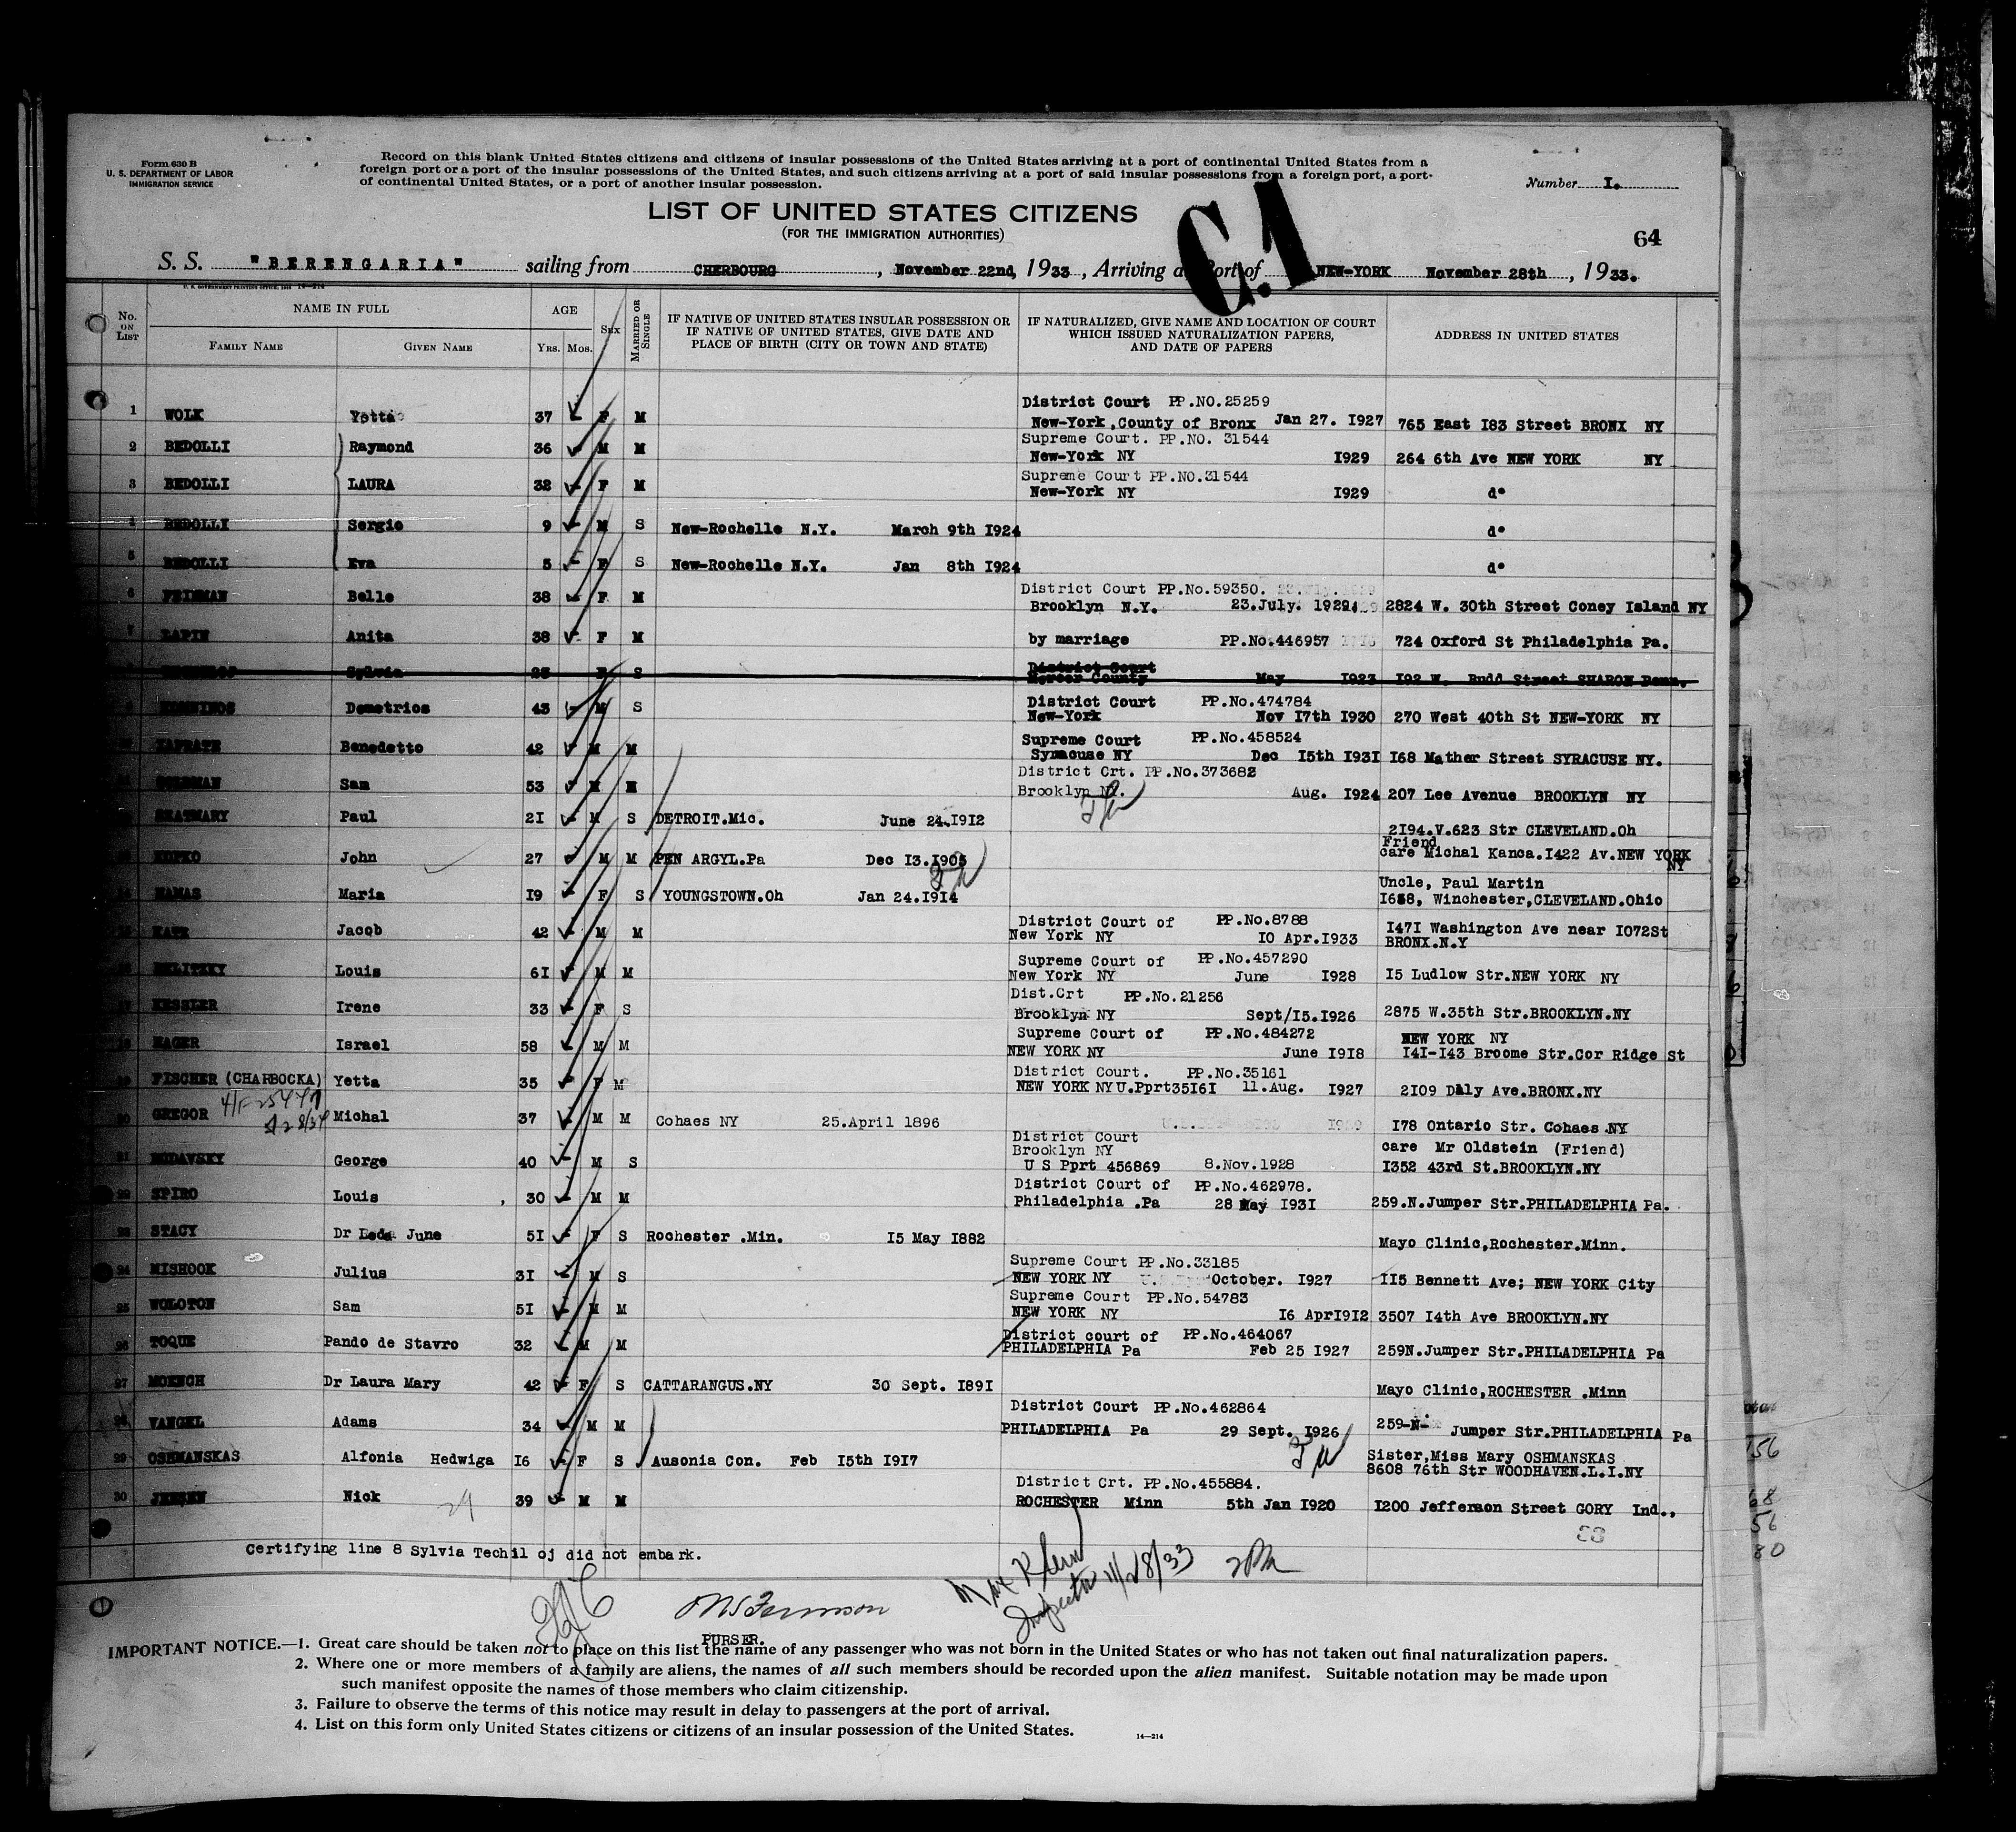 Form 630 B
U. S. DEPARTMENT OF LABOR
IMMIGRATION SERVICE
Record on this blank United States citizens and citizens of insular possessions of the United States arriving at a port of continental United States from a
foreign port or a port of the insular possessions of the United States, and such citizens arriving at a port of said insular possessions from a foreign port, a port
of continental United States, or a port of another insular possession.
Number I.
LIST OF UNITED STATES CITIZENS
(FOR THE IMMIGRATION AUTHORITIES)
C.1
64
S. S. "BERENGARIA" sailing from CHERBOURG, November 22nd, 1933, Arriving at Port of NEW-YORK November 28th, 1933.
No. ON LIST
NAME IN FULL
FAMILY NAME
GIVEN NAME
AGE
YRS. MOS.
SEX
MARRIED OR SINGLE
IF NATIVE OF UNITED STATES INSULAR POSSESSION OR
IF NATIVE OF UNITED STATES, GIVE DATE AND
PLACE OF BIRTH (CITY OR TOWN AND STATE)
IF NATURALIZED, GIVE NAME AND LOCATION OF COURT
WHICH ISSUED NATURALIZATION PAPERS,
AND DATE OF PAPERS
ADDRESS IN UNITED STATES
District Court PP.NO.25259
1 WOLK Yetta 37 F M New-York,County of Bronx Jan 27. I927 765 East I83 Street BRONX NY
Supreme Court. PP.NO. 31544
2 BEDOLLI Raymond 36 M M New-York NY I929 264 6th Ave NEW YORK NY
Supreme Court PP.NO.31544
3 BEDOLLI LAURA 32 F M New-York NY I929 d°
4 BEDOLLI Sergio 9 M S New-Rochelle N.Y. March 9th I924 d°
5 BEDOLLI Eva 5 F S New-Rochelle N.Y. Jan 8th I924 d°
District Court PP.No.59350.
6 FEINMAN Belle 38 F M Brooklyn N.Y. 23.July. 1929. 2824 W. 30th Street Coney Island NY
7 LAPIN Anita 38 F M by marriage PP.No.446957 724 Oxford St Philadelphia Pa.
District Court
Sylvia S Mercer County May I923 I92 W. Budd Street SHARON Penn.
District Court PP.No.474784
Demetrios 43 M S New-York Nov I7th I930 270 West 40th St NEW-YORK NY
Supreme Court PP.No.458524
Benedetto 42 M M Syracuse NY Dec I5th I93I I68 Mather Street SYRACUSE NY.
District Crt. PP.No.373682
Sam 53 M M Brooklyn NY. Aug. I924 207 Lee Avenue BROOKLYN NY
SZATMARY Paul 2I M S DETROIT.Mic. June 24.I9I2 2I94.V.623 Str CLEVELAND.Oh
Friend
John 27 M M PEN ARGYL.Pa Dec I3.I905 care Michal Kanca.I422 Av.NEW YORK
NY
Uncle, Paul Martin
HAMAS Maria I9 F S YOUNGSTOWN.Oh Jan 24.I9I4 I658, Winchester,CLEVELAND.Ohio
District Court of PP.No.8788 I47I Washington Ave near I072St
KATZ Jacob 42 M M New York NY IO Apr.I933 BRONX.N.Y
Supreme Court of PP.No.457290
BELITZKY Louis 6I M M New York NY June I928 I5 Ludlow Str.NEW YORK NY
Dist.Crt PP.No.21256
KESSLER Irene 33 F S Brooklyn NY Sept/I5.I926 2875 W.35th Str.BROOKLYN.NY
Supreme Court of PP.No.484272 NEW YORK NY
HAGER Israel 58 M M NEW YORK NY June I9I8 I4I-I43 Broome Str.Cor Ridge St
District Court. PP.No.35161
FISCHER (CHARBOCKA) Yetta 35 F M NEW YORK NY U.Pprt35I6I 11.Aug. I927 2I09 Daly Ave.BRONX.NY
20 GREGOR Michal 37 M M Cohaes NY 25.April 1896 I78 Ontario Str. Cohaes NY
District Court
Brooklyn NY care Mr Oldstein (Friend)
21 RUDAVSKY George 40 M S U S Pprt 456869 8.Nov.1928 I352 43rd St.BROOKLYN.NY
District Court of PP.No.462978.
22 SPIRO Louis 30 M M Philadelphia .Pa 28 May I93I 259.N.Jumper Str.PHILADELPHIA Pa.
23 STACY Dr Leda June 5I F S Rochester .Min. I5 May I882 Mayo Clinic,Rochester.Minn.
Supreme Court PP.No.33185
24 MISHOOK Julius 3I M S NEW YORK NY October. I927 II5 Bennett Ave; NEW YORK City
Supreme Court PP.No.54783
25 WOLOTON Sam 5I M M NEW YORK NY I6 AprI9I2 3507 I4th Ave BROOKLYN.NY
District court of PP.No.464067
26 TOQUE Pando de Stavro 32 M M PHILADELPHIA Pa Feb 25 I927 259N.Jumper Str.PHILADELPHIA Pa
27 MOENCH Dr Laura Mary 42 F S CATTARANGUS.NY 30 Sept. I89I Mayo Clinic,ROCHESTER .Minn
District Court PP.No.462864
28 VANGEL Adams 34 M M PHILADELPHIA Pa 29 Sept. I926 259-N- Jumper Str.PHILADELPHIA Pa
Sister,Miss Mary OSHMANSKAS
29 OSHMANSKAS Alfonia Hedwiga I6 F S Ausonia Con. Feb I5th I9I7 8608 76th Str WOODHAVEN.L.I.NY
District Crt. PP.No.455884.
30 JENSEN Nick 39 M M ROCHESTER Minn 5th Jan I920 I200 Jefferson Street GORY Ind..
29
Certifying line 8 Sylvia Techil oj did not embark.
Max Klein
Inspector 11/28/33
PURSER.
IMPORTANT NOTICE.—1. Great care should be taken not to place on this list the name of any passenger who was not born in the United States or who has not taken out final naturalization papers.
2. Where one or more members of a family are aliens, the names of all such members should be recorded upon the alien manifest. Suitable notation may be made upon
such manifest opposite the names of those members who claim citizenship.
3. Failure to observe the terms of this notice may result in delay to passengers at the port of arrival.
4. List on this form only United States citizens or citizens of an insular possession of the United States.
14—214